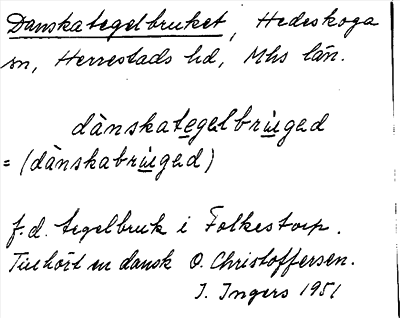 Danskategelbruket, Hedeskoga
sn, Herrestads hd, Mhs län.
dànskategelbrugad
= (dànskabrugad)
f.d. tegelbruk i Folkestorp.
Tillhört en dansk O. Christoffersen.
I. Ingers 1951